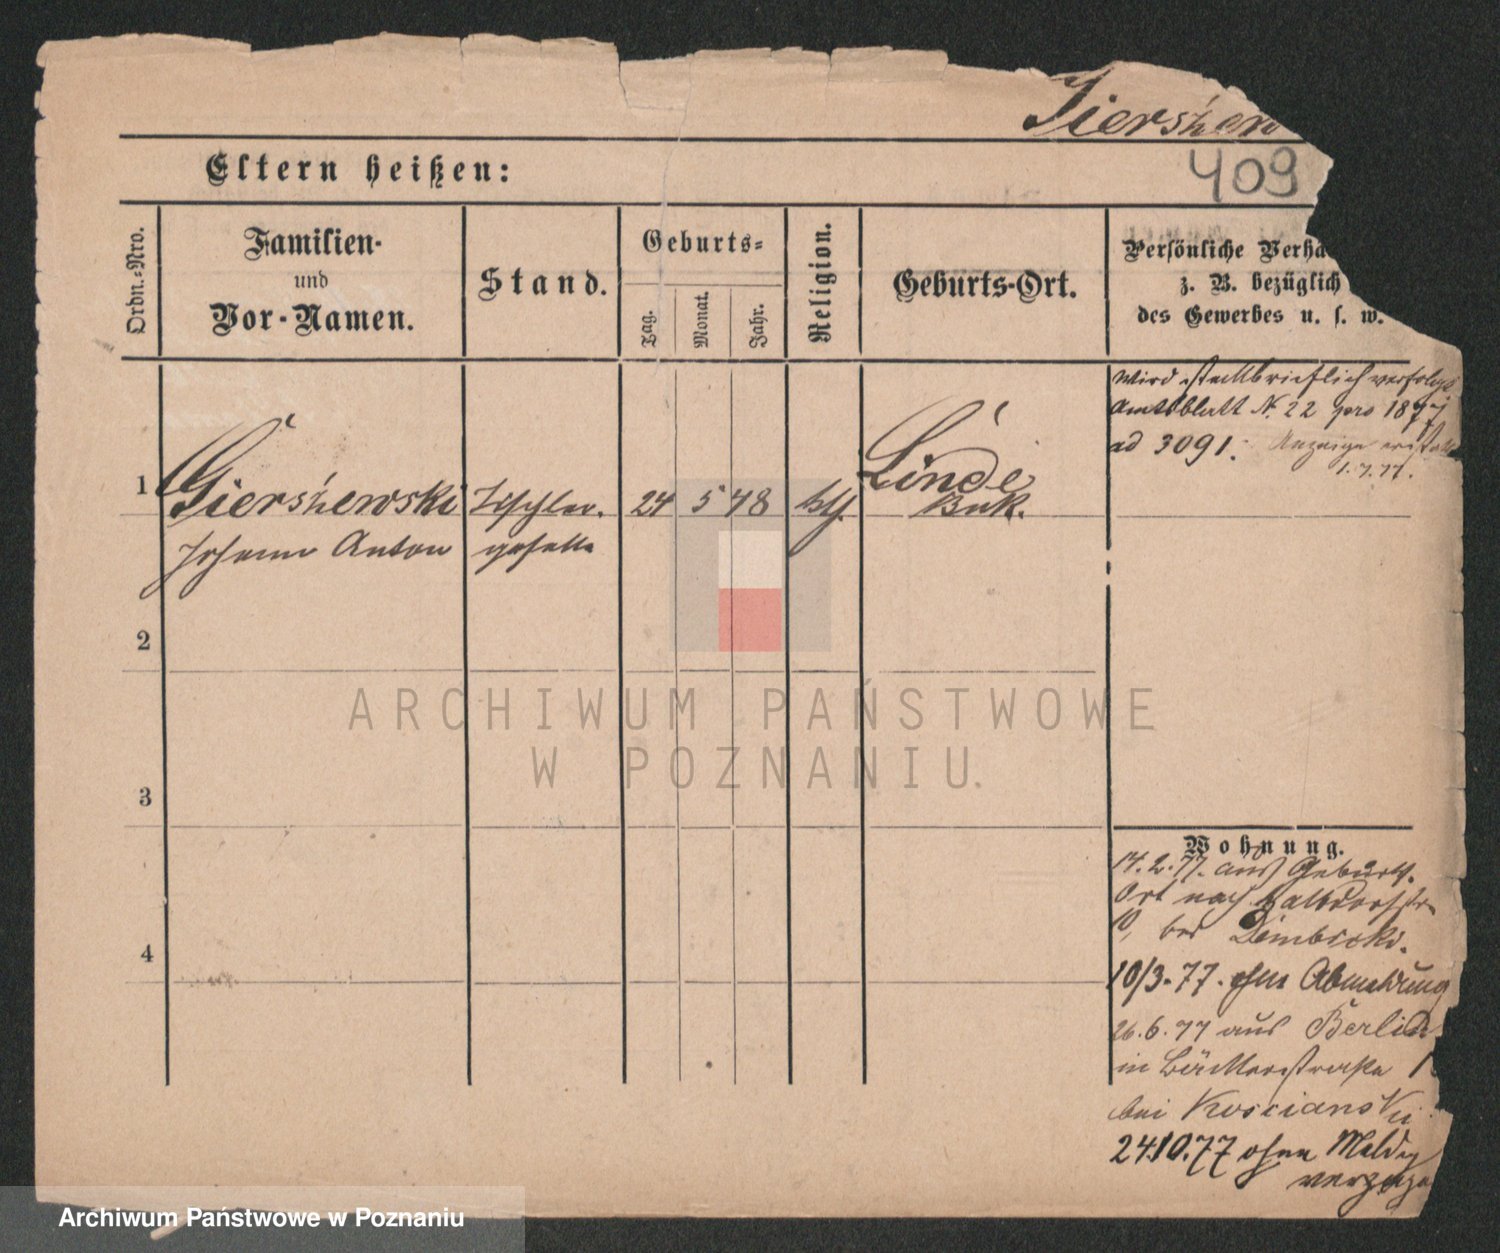 Gierszew
409
Eltern heißen:
Ordn.-Nro.
Familien-
und
Vor-Namen.
Stand.
Geburts-
Tag.
Monat.
Jahr.
Religion.
Geburts-Ort.
Persönliche Verhä
z. B. bezüglich
des Gewerbes u. s. w.
wird steckbrieflich verfolgt
Amtsblatt N. 22 pro 1877
ad 3091. Anzeige
1.7.77.
1
Gierszewski
Tischler-
24
5
48
kth.
Linde
Buk.
Johann Anton
geselle
2
3
4
Wohnung.
14.2.77. aus Geburts-
Ort nach
10, bei Dembicki.
10/3.77. ohne Abmeldung
26.6.77 aus Berlin
in 1
bei Koscianski
24.10.77 ohne Meldg
verzogen
ARCHIWUM PAŃSTWOWE
W POZNANIU
Archiwum Państwowe w Poznaniu